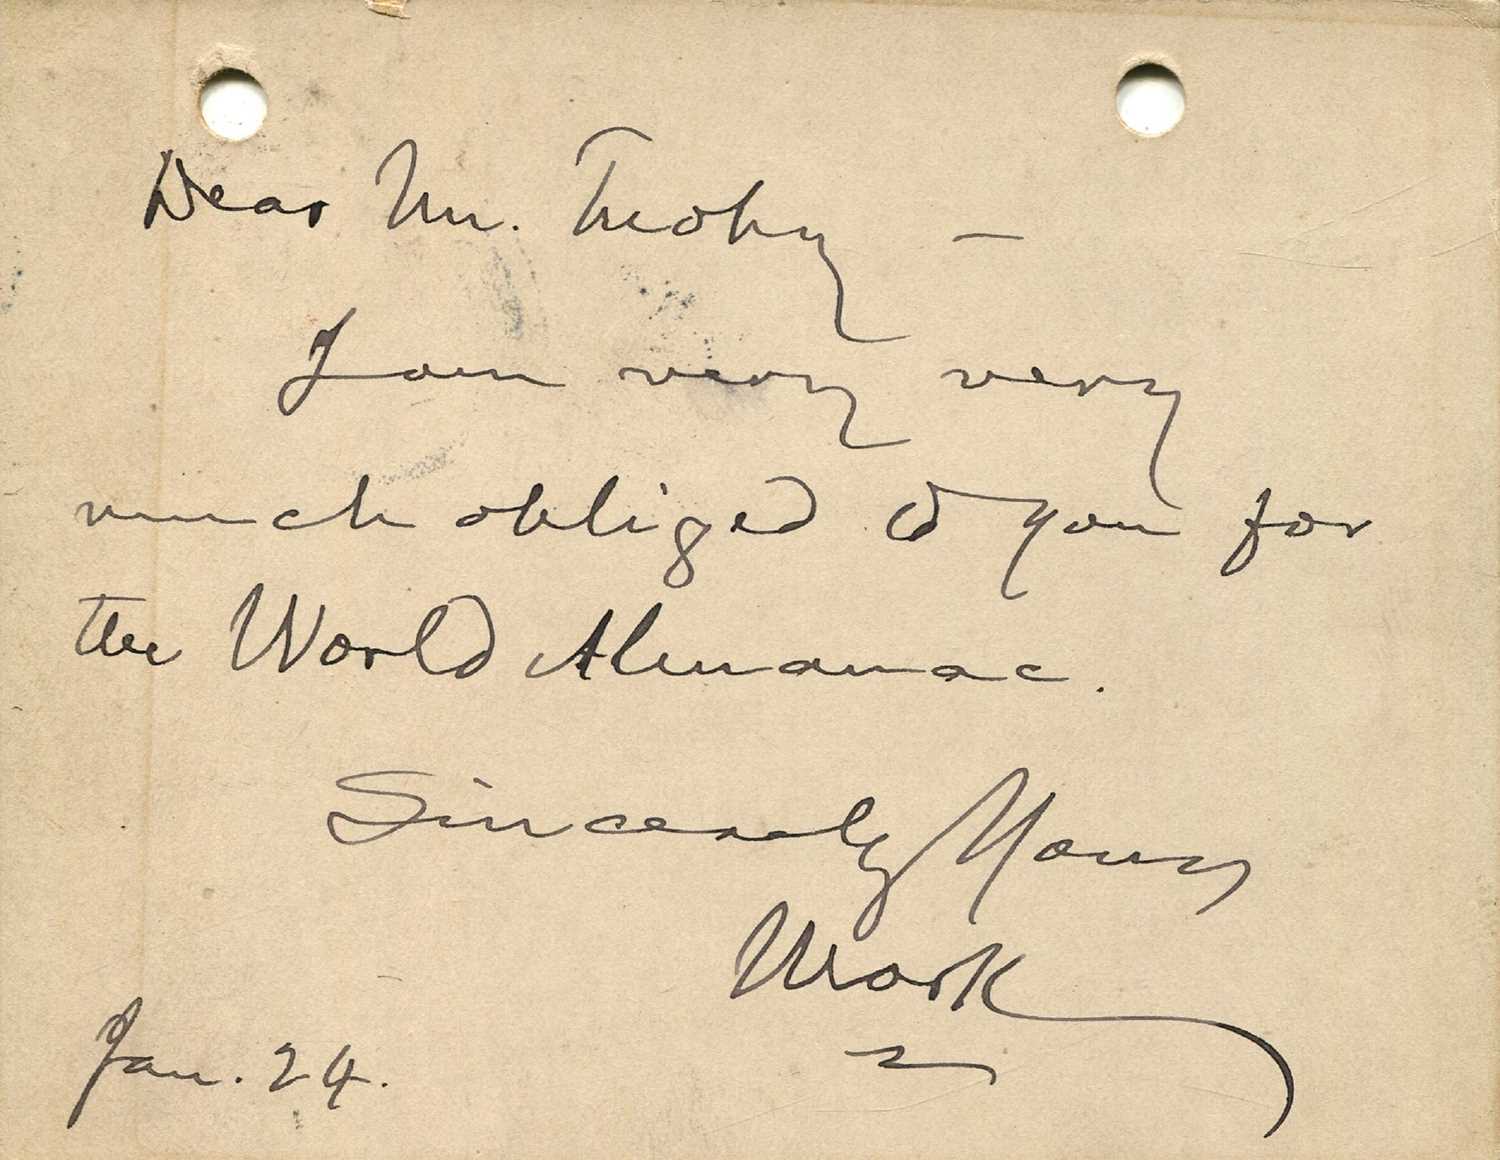 Dear Mr. Tuohy —
I am very very
much obliged to you for
the World Almanac.
Sincerely Yours
Mark
Jan. 24.